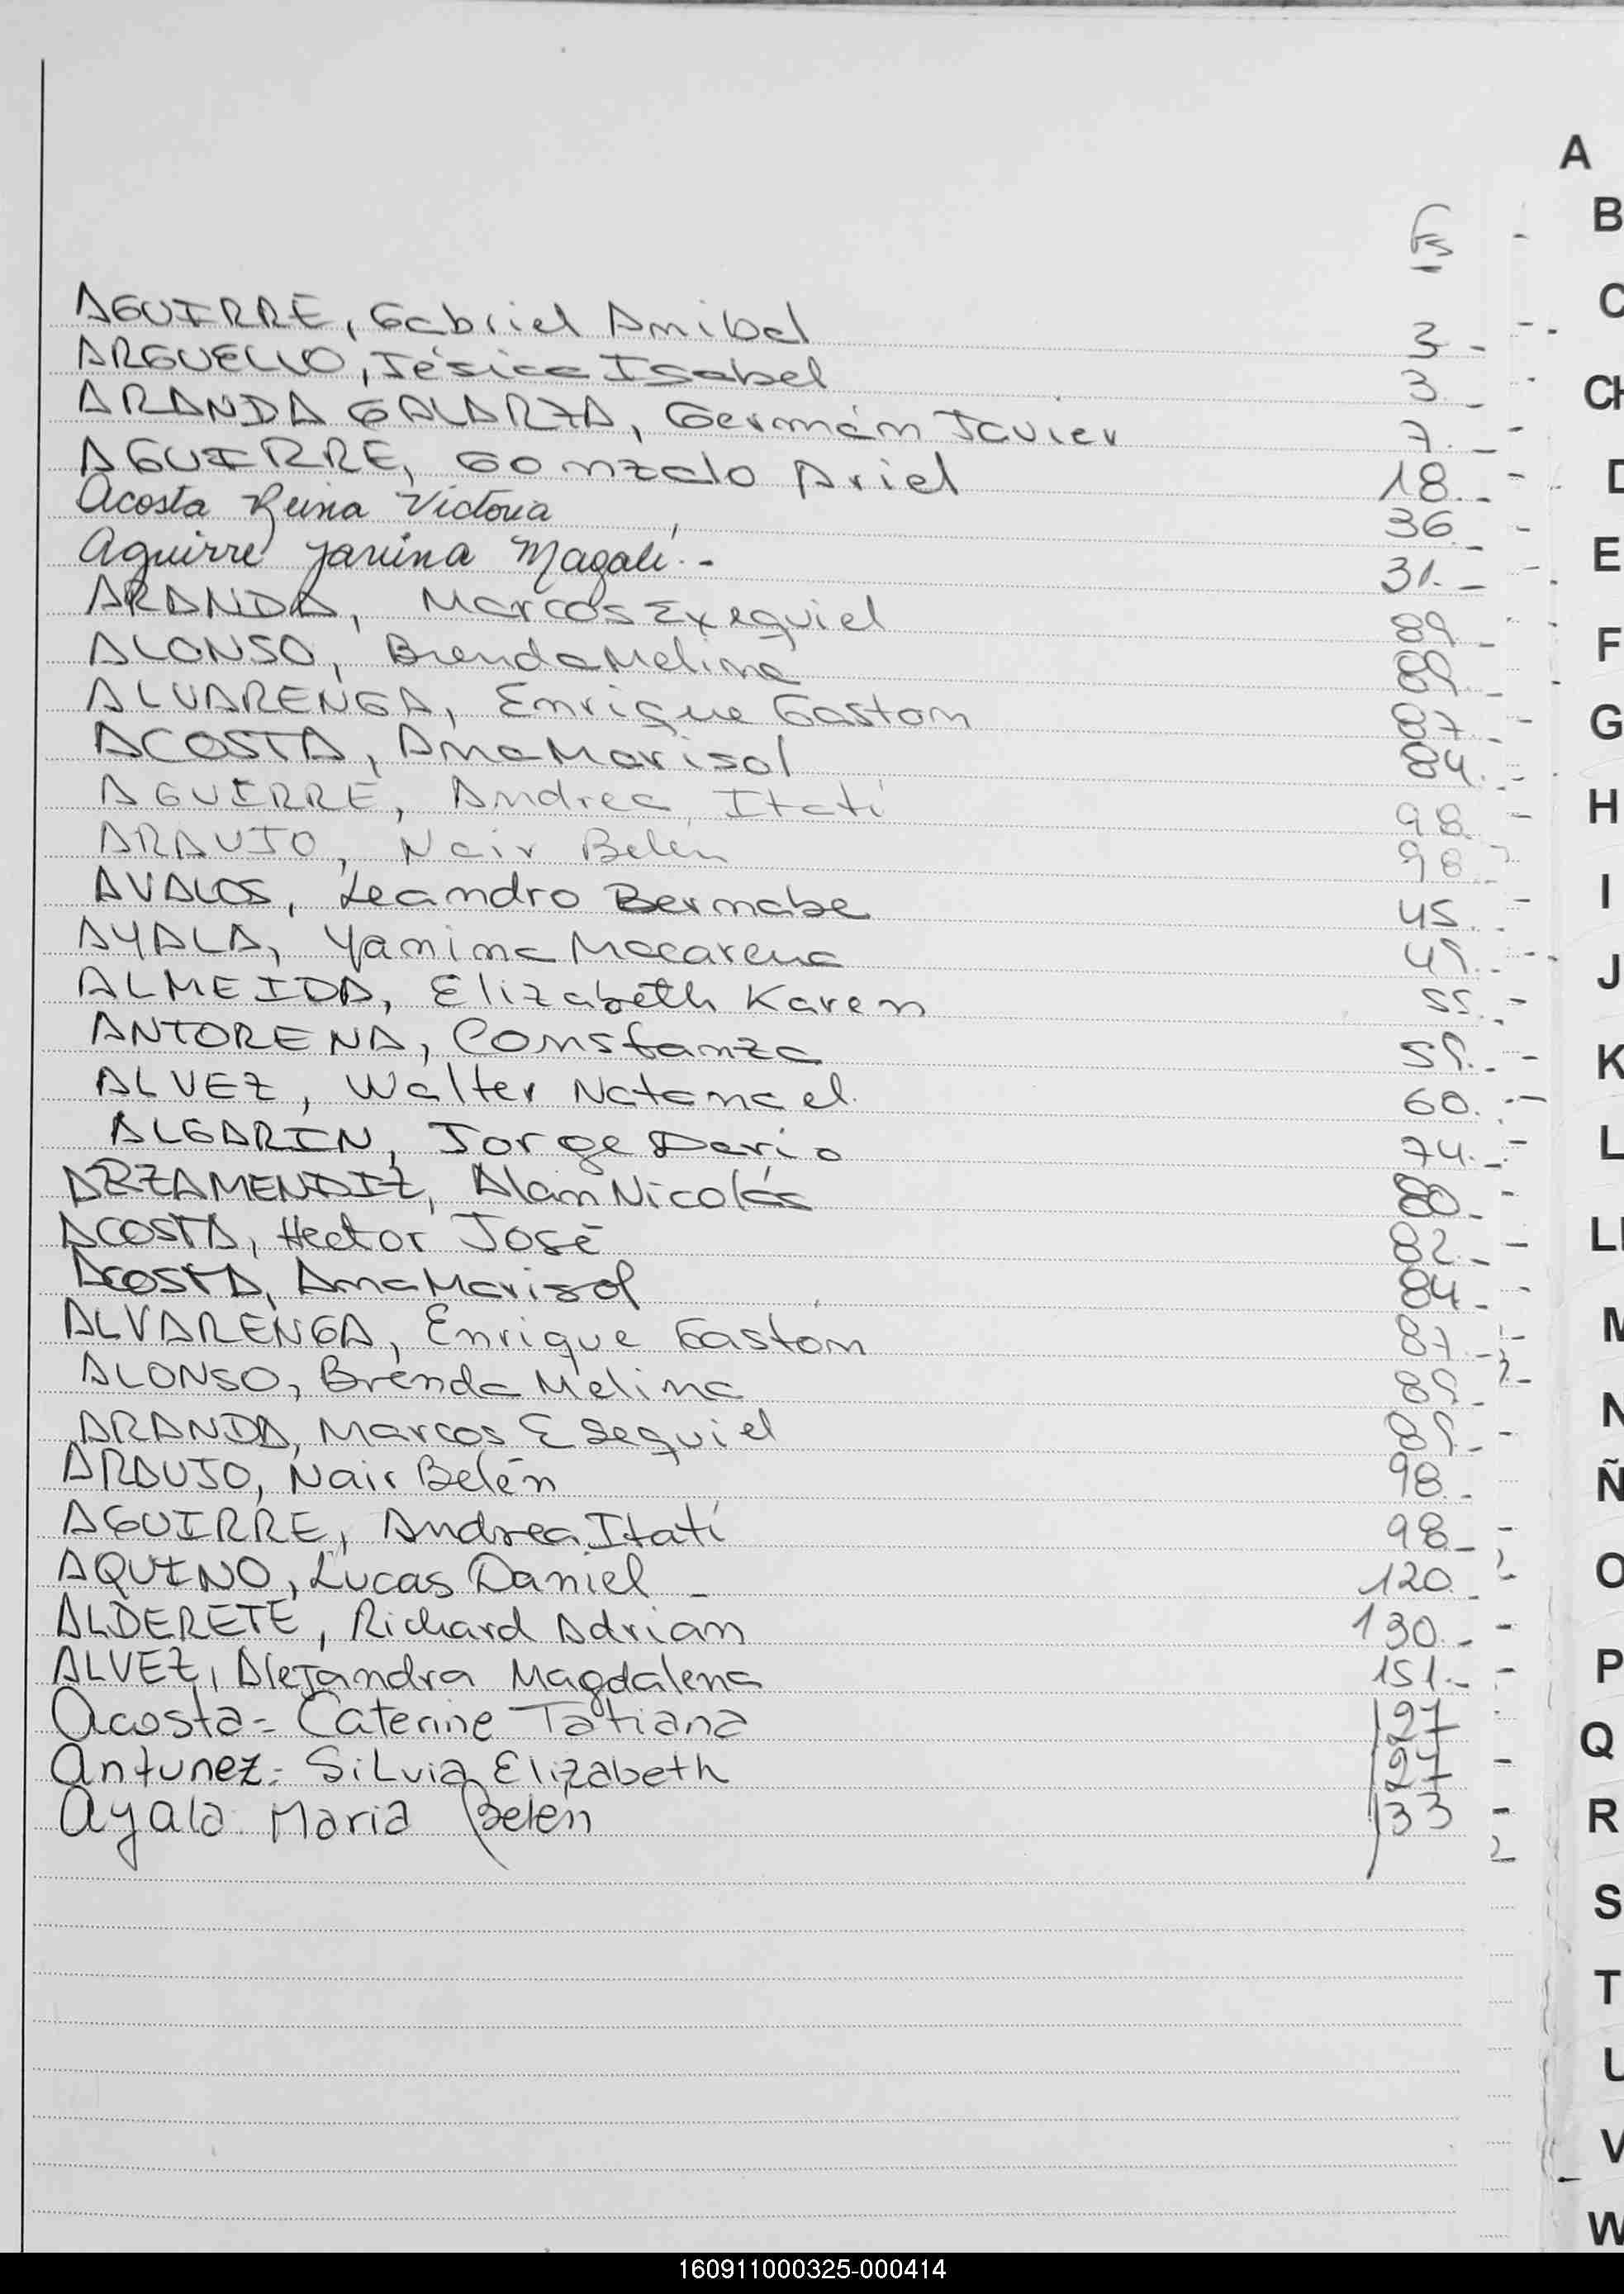 Fs
AGUIRRE, Gabriel Anibal 3 -
ARGUELLO, Jésica Isabel 3 -
ARANDA GALARZA, Germán Javier 7. -
AGUIRRE, Gonzalo Ariel 18. -
Acosta Reina Victoria 36 -
Aguirre Yanina Magalí.- 31. -
ARANDA, Marcos Exequiel 89 -
ALONSO, Brenda Melina 89. -
ALVARENGA, Enrique Gaston 87. -
ACOSTA, Ana Marisol 84. -
AGUIRRE, Andrea Itatí 98.
ARAUJO, Nair Belén 98
AVALOS, Leandro Bernabe 45.
AYALA, Yanina Macarena 49. -
ALMEIDA, Elizabeth Karen 55. -
ANTORENA, Constanza 59. -
ALVEZ, Walter Natanael. 60. -
ALGARIN, Jorge Dario 74. -
ARZAMENDIZ, Alan Nicolás 80 -
ACOSTA, Hector José 82. -
ACOSTA, Ana Marisol 84 -
ALVARENGA, Enrique Gaston 87. -
ALONSO, Brenda Melina 89. -
ARANDA, Marcos Esequiel 89. -
ARAUJO, Nair Belén 98. -
AGUIRRE, Andrea Itatí 98 -
AQUINO, Lucas Daniel - 120. -
ALDERETE, Richard Adrian 130. -
ALVEZ, Alejandra Magdalena 151. -
Acosta - Caterine Tatiana 127
Antunez - Silvia Elizabeth 127
Ayala Maria Belén 133
A
B
C
CH
D
E
F
G
H
I
J
K
L
LL
M
N
Ñ
O
P
Q
R
S
T
U
V
W
160911000325-000414